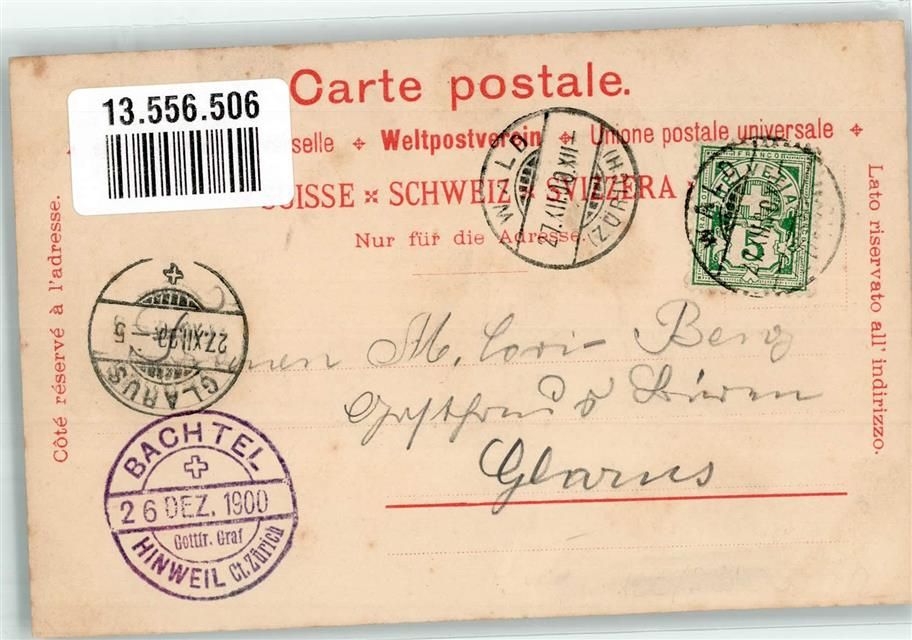 Carte postale.
13.556.506
selle Weltpostverein Unione postale universale
SUISSE SCHWEIZ SVIZZERA
Nur für die Adresse.
Côté réservé à l'adresse.
Lato riservato all' indirizzo.
WALD
27.XII.00.XII-
(ZÜRICH)
FRANCO
HELVETIA
5
WALD
27.XII.00
GLARUS
M. Benz
Glarus
BACHTEL
26 DEZ. 1900
Gottfr. Graf
HINWEIL Ct. Zürich